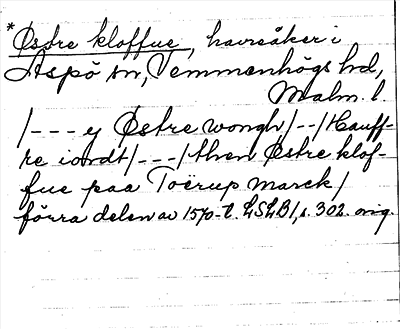 *Østre kloffue, havreåker i
Aspö sn, Vemmenhögs hd,
Malm. l.
/--- y Østre wongh/--/Hauff-
re iordt/---/then Østre klof-
fue paa Toërup marck/
förra delen av 1570-t. LSLB1, s. 302. orig.